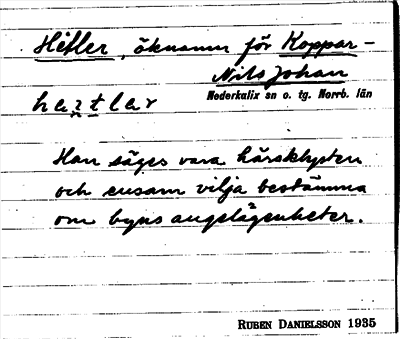 Hitler, öknamn för Koppar-
Nils Johan
Nederkalix sn o. tg. Norrb. län
haztlar
Han säges vara härsklysten
och ensam vilja bestämma
om byns angelägenheter.
RUBEN DANIELSSON 1935